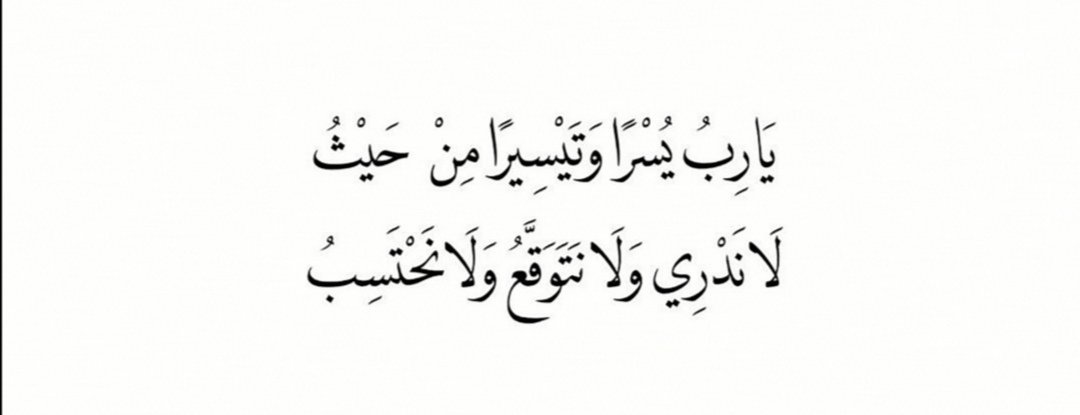 يَارِبُ يُسْرًا وَتَيْسِيرًا مِنْ حَيْثُ
لَا نَدْرِي وَلَا نَتَوَقَّعُ وَلَا نَحْتَسِبُ